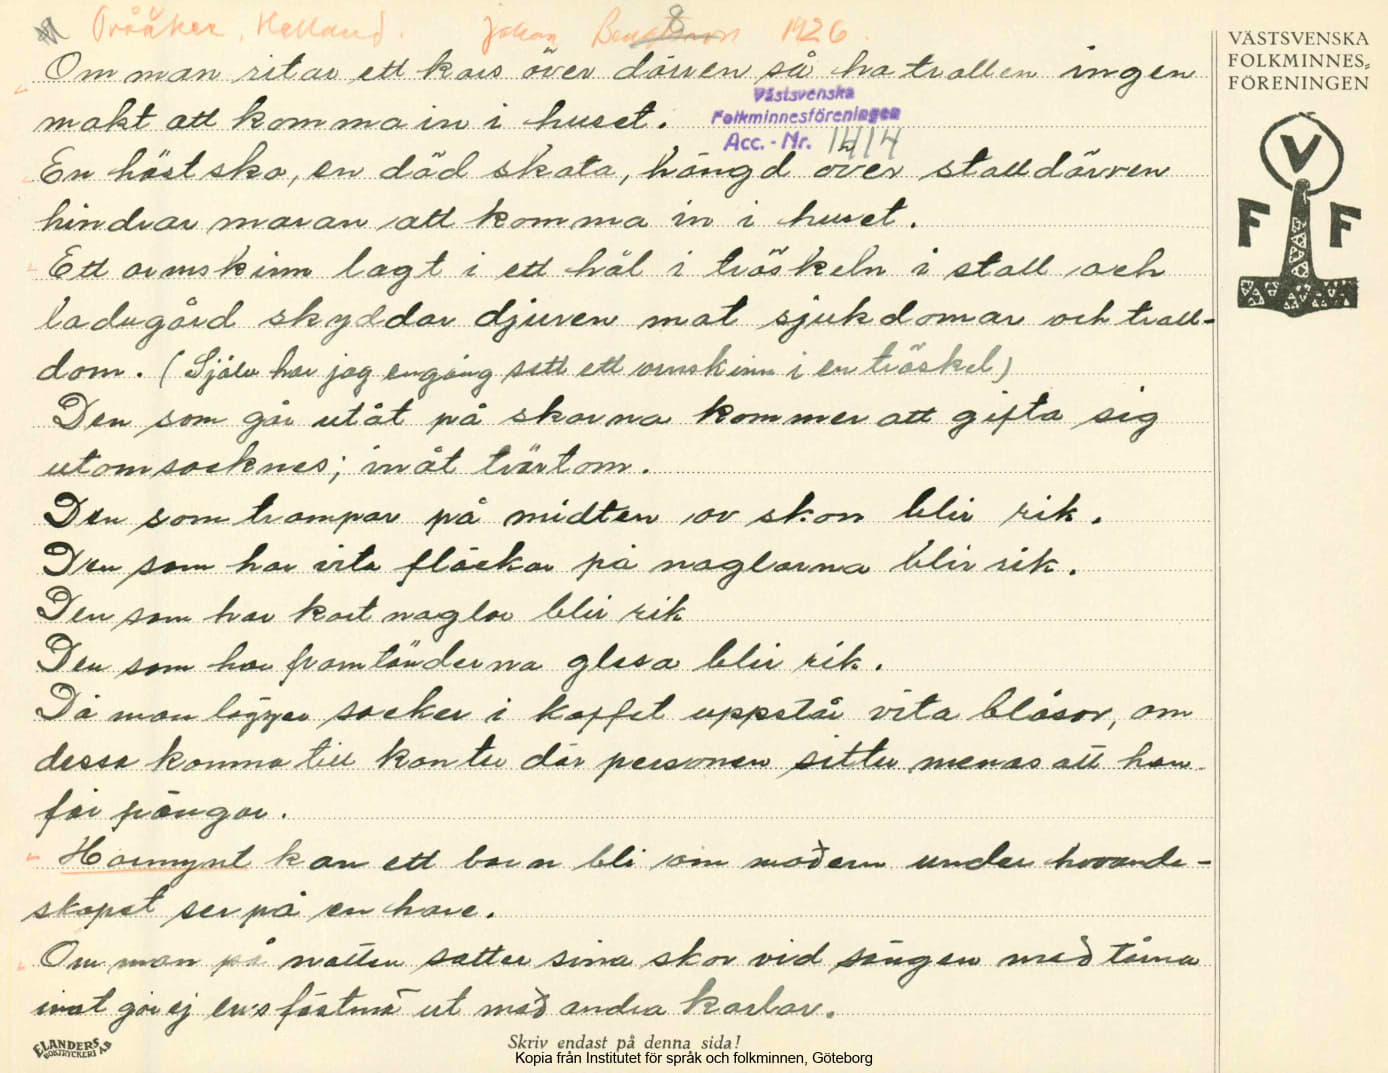 Tvååker, Halland. Johan Bengtsson 1926.
8
VÄSTSVENSKA
FOLKMINNES=
FÖRENINGEN
V
F F
Om man ritar ett kors över dörren så ha trollen ingen
makt att komma in i huset.
Västsvenska
Folkminnesföreningen
Acc.-Nr. 1414
En hästsko, en död skata, hängd över stalldörren
hindrar maran att komma in i huset.
Ett ormskinn lagt i ett hål i tröskeln i stall och
ladugård skyddar djuren mot sjukdomar och troll-
dom. (Själv har jag engång sett ett ormskinn i en tröskel)
Den som går utåt på skorna kommer att gifta sig
utomsocknes; inåt tvärtom.
Den som trampar på midten av skon blir rik.
Den som har vita fläckar på naglarna blir rik.
Den som har kort naglar blir rik
Den som har framtänderna glesa blir rik.
Då man lägger socker i kaffet uppstår vita blåsor, om
dessa komma till kanten där personen sitter menas att han
får pängar.
Harmynt kan ett barn bli om modern under havande-
skapet ser på en hare.
Om man på natten sätter sina skor vid sängen med tårna
inåt går ej ens fästmö ut med andra karlar.
ELANDERS
BOKTRYCKERI AB
Skriv endast på denna sida!
Kopia från Institutet för språk och folkminnen, Göteborg